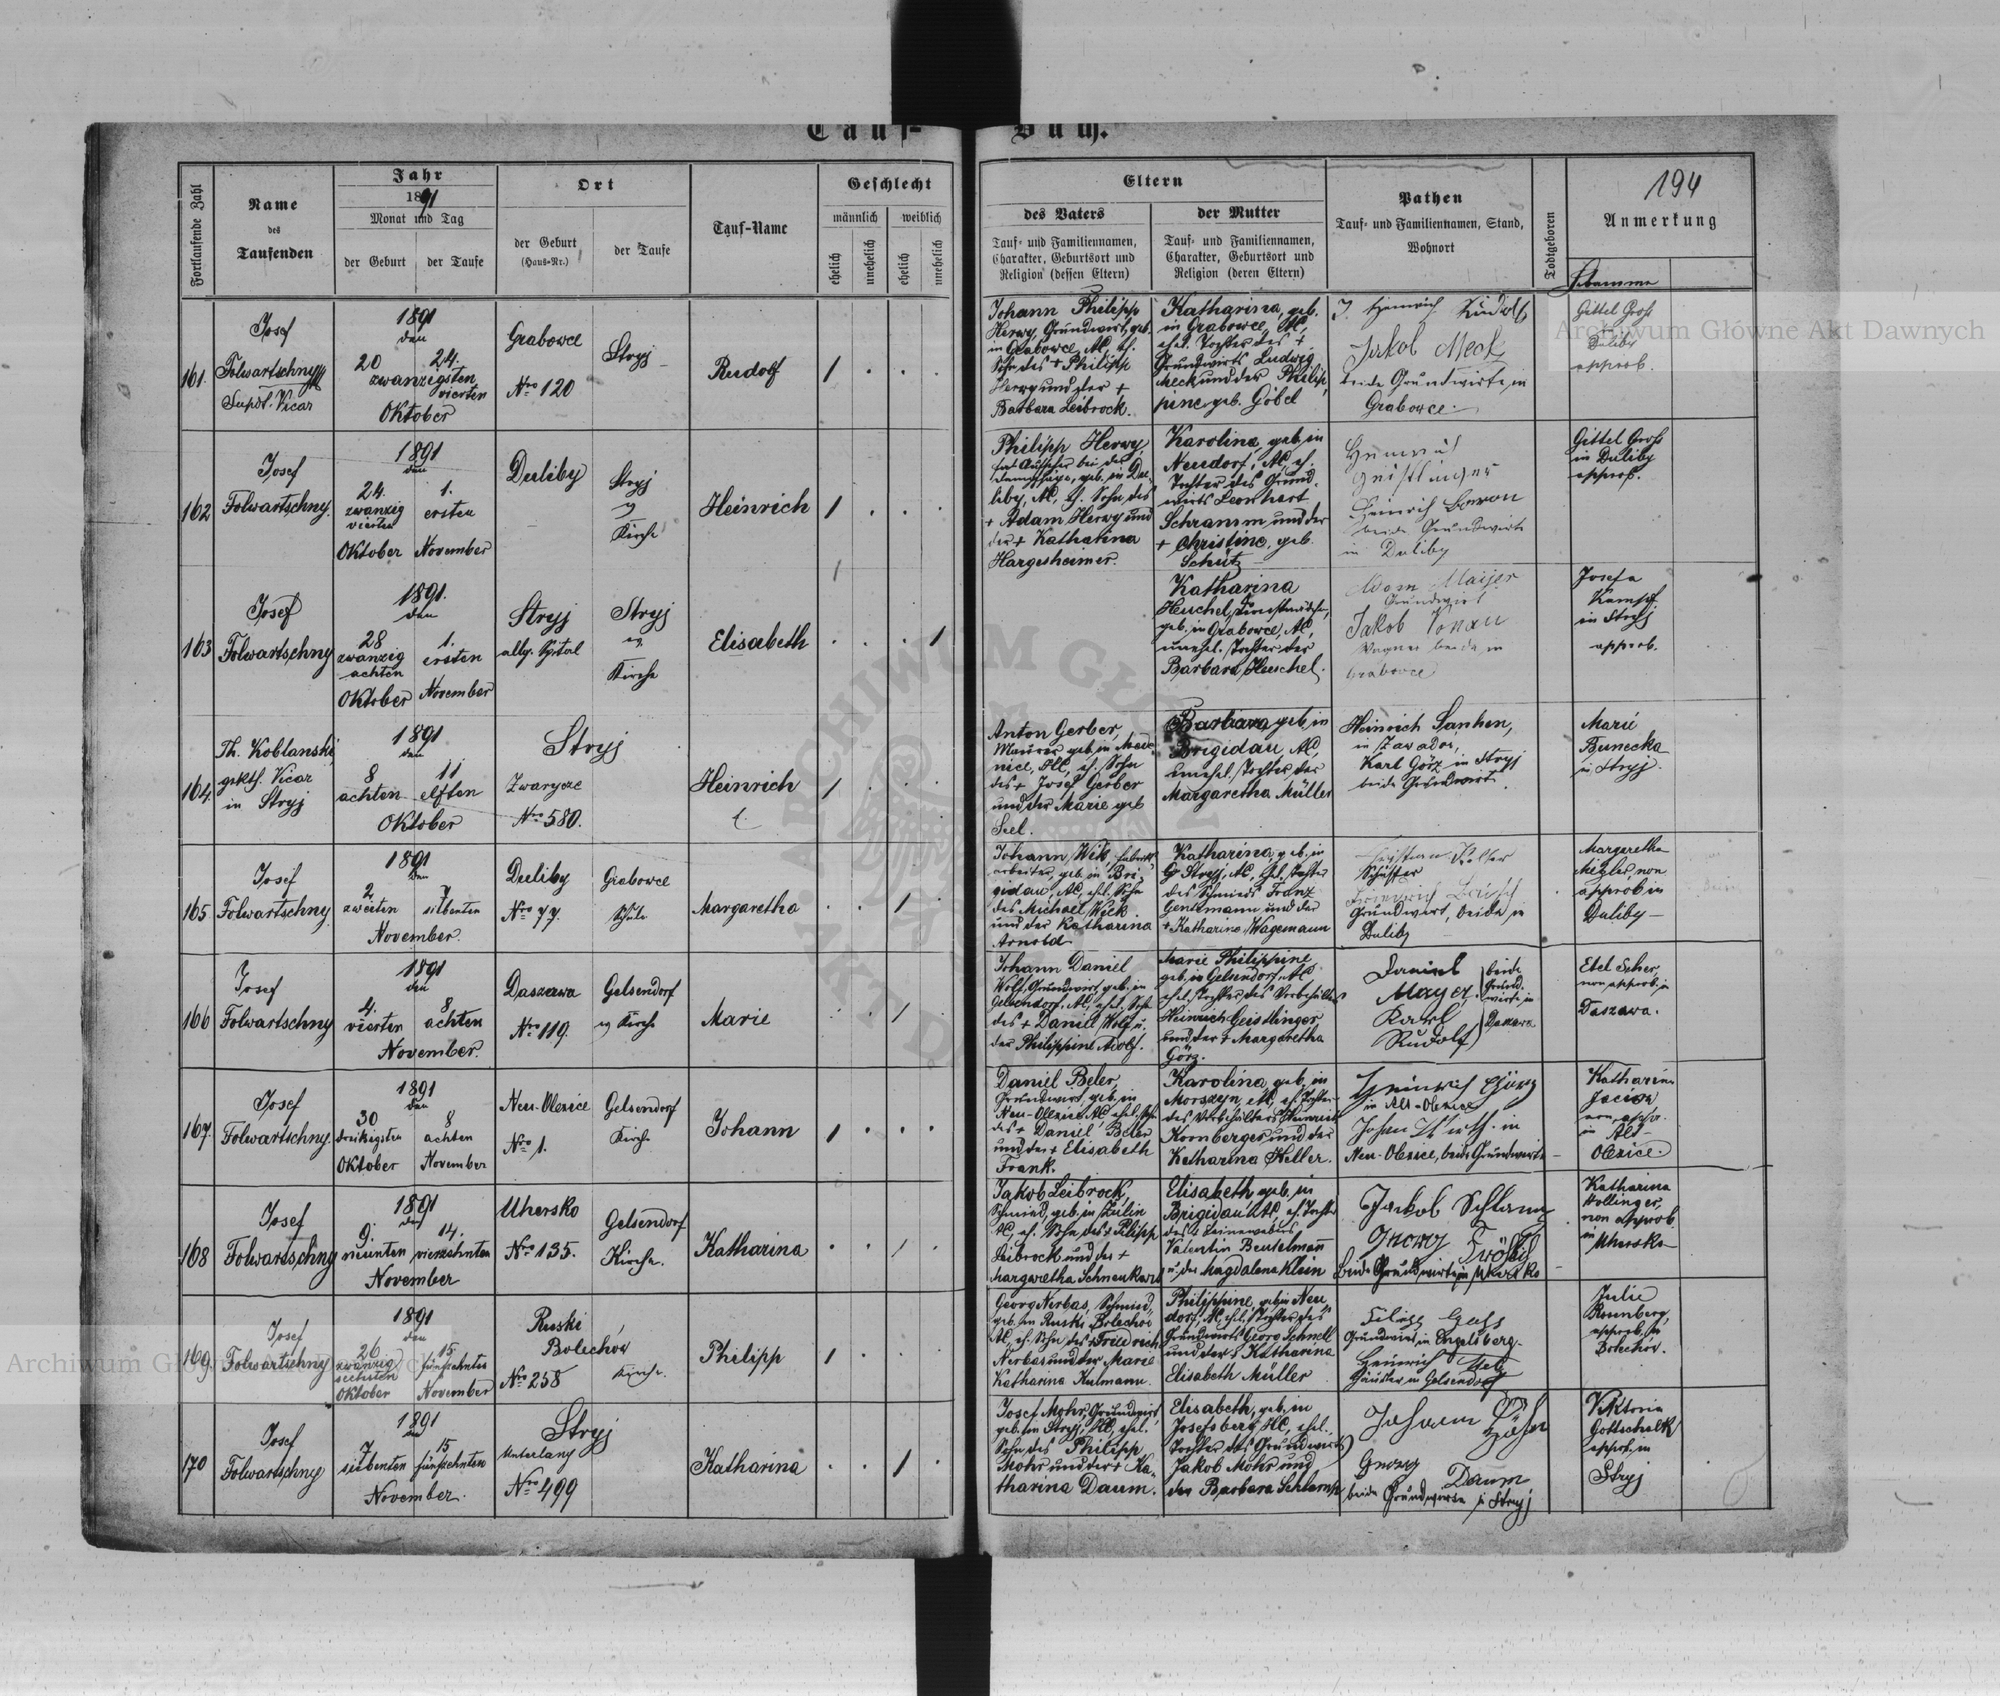 Tauf-Buch.
194
Fortlaufende Zahl
Name
des
Taufenden
Jahr
1891
Monat und Tag
der Geburt
der Taufe
Ort
der Geburt
(Haus-Nr.)
der Taufe
Tauf-Name
Geschlecht
männlich
weiblich
ehelich
unehelich
ehelich
unehelich
Eltern
des Vaters
Tauf- und Familiennamen,
Charakter, Geburtsort und
Religion (dessen Eltern)
der Mutter
Tauf- und Familiennamen,
Charakter, Geburtsort und
Religion (deren Eltern)
Pathen
Tauf- und Familiennamen, Stand,
Wohnort
Todtgeboren
Anmerkung
Hebamme
161.
Josef
Folwartschny
Supdt. Vicar
1891
den
20 24.
zwanzigsten
vierten
Oktober
Grabowce
Nro 120
Stryj
Rudolf
Johann Philipp
Herwy, Grundwirt, geb.
in Grabowce, AC, eh.
Sohn des + Philipp
Herwy und der +
Barbara Leibrock.
Katharina, geb.
in Grabowce, AC,
ehel. Tochter des +
Grundwirts Ludwig
Meck und der Philip
pine geb. Göbel
Jakob Meck
beide Grundwirte, in
Grabowce.
Gittel Gross
Duliby
approb.
162
Josef
Folwartschny.
1891
den
24. 1.
zwanzig ersten
vierten
Oktober November
Duliby
Stryj
Kirche
Heinrich
Philipp Herwy,
liby, AC, eh. Sohn des
+ Adam Herwy und
der + Katharina
Hargesheimer.
Karolina, geb. in
Neudorf, AC, eh.
Tochter des Grund-
wirts Leonhart
Schramm und der
+ Christine, geb.
Schütz
beide Grundwirte
in Duliby
Gittel Gross
in Duliby
approb.
163
Josef
Folwartschny
1891.
den
28 1.
zwanzig ersten
achten
Oktober November
Stryj
allg. Spital
Stryj
Kirche
Elisabeth
Katharina
Heuchel,
geb. in Grabowce, AC,
unehel. Tochter der
Barbara Heuschel.
Adam Maijer
Grundwirt
Jakob
Wagner beide in
Grabowce
Josefa
Kampf
in Stryj
approb.
164.
Th. Koblanski,
grkth. Vicar
in Stryj
1891
den
8 11
achten elften
Oktober
Stryj
Zwarycze
Nro 580.
Heinrich
Anton Gerber,
Maurer geb. in Mede-
nice, HC, eh. Sohn
des + Josef Gerber
und der Marie geb
Seel.
Barbara geb. in
Brigidau, AC,
unehel. Tochter der
Margaretha Müller
Heinrich Lanhen,
in Zawadow,
Karl Görz in Stryj
beide Grundwirt.
Marie
Bunecka
in Stryj.
165
Josef
Folwartschny.
1891
den
2. 7
zweiten siebenten
November.
Duliby
Nro 77.
Grabowce
Schule
Margaretha
Johann Wik, Fabriks-
arbeiter, geb. in Bri-
gidau, AC, ehel. Sohn
des Michael Wick
und der Katharina
Arnold
Katharina, geb. in
Stryj, AC, ehel. Tochter
des Schmieds Franz
Gentzmann und der
+ Katharina Wagemann
Christian Kolter
Schuster
Grundwirt, beide in
Duliby
Margaretha
Migler, non
approb. in
Duliby
166
Josef
Folwartschny
1891
den
4. 8
vierten achten
November.
Daszawa
Nro 119.
Gelsendorf
Kirche
Marie
Johann Daniel
Wolf, Grundwirt, geb. in
Gelsendorf, AC, ehel. Sohn
des + Daniel Wolf u.
der Philippine Adolf.
Marie Philippine,
geb. in Gelsendorf, AC
ehel. Tochter des Vorbehälters
Heinrich Geistlinger
und der + Margaretha
Görz.
Daniel
Mayer.
Karl
Rudolf
beide
Grund-
wirte in
Daszawa
Etel Scher,
non approb. in
Daszawa.
167.
Josef
Folwartschny.
1891
den
30 8
dreizigsten achten
Oktober November
Neu-Olexice
Nro 1.
Gelsendorf
Kirche
Johann
Daniel Beler,
Grundwirt, geb. in
Neu-Olexice, AC ehel. Sohn
des + Daniel Beler
und der + Elisabeth
Frank.
Karolina, geb. in
Morszyn, AC, eh. Tochter
des Vorbehälters Heinrich
Kornberger und der
Katharina Heller.
Heinrich Görz
in Alt-Olexice
Johan Wirth in
Neu-Olexice, beide Grundwirte
Katharina
in Alt-
Olexice.
168
Josef
Folwartschny
1891
den
9. 14.
neunten vierzehnten
November
Uhersko
Nro 135.
Gelsendorf
Kirche.
Katharina
Jakob Leibrock,
Schmied, geb. in Zulin
AC, eh. Sohn des + Philipp
Leibrock und der +
Margaretha Schnenkard
Elisabeth, geb. in
Brigidau, AC, eh. Tochter
des + Leinewebers
Valentin Beutelmann
u. der Magdalena Klein
Jakob Schlamp
Georg Fröhlich
beide Grundwirte in Uhersko
Katharina
Hollinger,
non approb.
in
Uhersko
169.
Josef
Folwartschny
1891
den
26 15
zwanzig fünfzehnten
sechsten
Oktober November
Ruski
Bolechów
Nro 258
Kirche.
Philipp
Georg Nerbas, Schmied,
geb. in Ruski Bolechow
AC, eh. Sohn des + Friedrich
Nerbas und der Marie
Katharina Kulmann.
Philippine, geb. in Neu
dorf, AC, ehel. Tochter des
Grundwirts Georg Schnell
und der + Katharina
Elisabeth Müller
Filipp Gass
Grundwirt, in Engelsberg.
Heinrich Metz
Häusler in Gelsendorf
Julie
Rennberg,
approb. in
Bolechów.
170
Josef
Folwartschny
1891
den
7 15
siebenten fünfzehnten
November.
Stryj
Unterlany
Nro 499
Katharina
Josef Mohr, Grundwirt,
geb. in Stryj, HC, ehel.
Sohn des Philipp
Mohr und der + Ka-
tharina Daum.
Elisabeth, geb. in
Josefsberg, HC, ehel.
Tochter des Grundwirts
Jakob Mohr und
der Barbara Schlamp
Johann Höhn
Georg
Daum
beide Grundwirte in Stryj
Viktoria
Gottschalk
approb. in
Stryj
Archiwum Główne Akt Dawnych
Archiwum Główne Akt Dawnych
ARCHIWUM GŁÓWNE AKT DAWNYCH